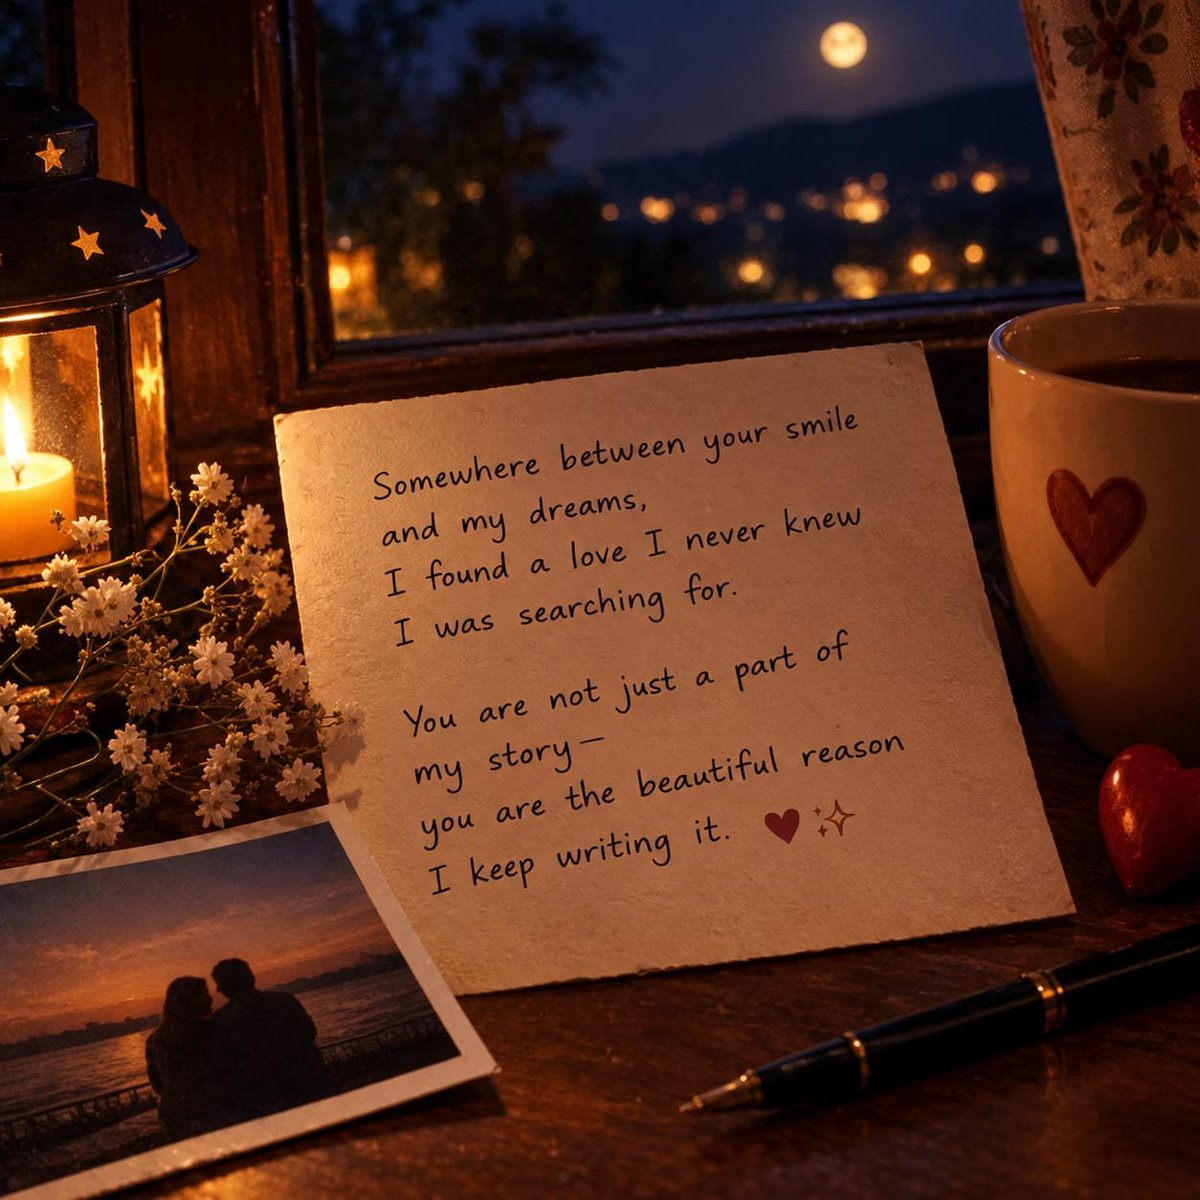 Somewhere between your smile
and my dreams,
I found a love I never knew
I was searching for.
You are not just a part of
my story—
you are the beautiful reason
I keep writing it. ❤️✨